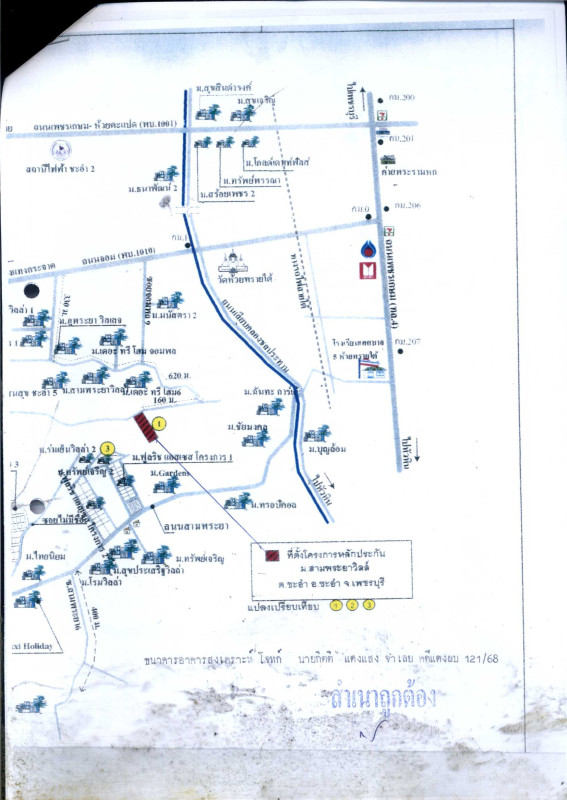 ม.สุขสินดำรงค์
ม.สุขเจริญ
ไปเพชรบุรี
กม.200
ถนนเพชรเกษม- ห้วยตะแปด (พบ.1001)
กม.201
สถานีไฟฟ้า ชะอำ 2
ม.โกลด์เดนท์พัลส์
ค่ายพระรามหก
ม.ทรัพย์พรรณา
ม.ธนาพัฒน์ 2
ม.สร้อยเพชร 2
กม.206
กม.0
กม.1
ถนนจอม (พบ.1010)
วัดห้วยทรายใต้
ถนนเพชรเกษม (ทล.4)
ทางรถไฟสายใต้
ถนนเลียบคลองชลประทาน
ซอยจอมพล 9
330 ม.
ม.มนัสตรา 2
วิลล่า 1
ม.ภูพระยา วิลเลจ
กม.207
โรงเรียนเทศบาล
5 ห้วยทรายใต้
ม.เดอะ ทรี โฮม จอมพล
620 ม.
ชะอำ 5
ม.สามพระยาวิลล์
ม.เดอะ ทรี โฮม6
160 ม.
ม.ฉันทะ การ์เด้น
1
ม.ชัยมงคล
ม.บุญล้อม
ไปหัวหิน
ม.ร่มเย็นวิลล่า 2
3
ม.ฟูลริช แอสเซส โครงการ 1
ม.ทรัพย์เจริญ 2
ม.Gardens
ไปหัวหิน
ม.ทรอปิคอล
ซอยไม่มีชื่อ
ถนนสามพระยา
ม.ไทยนิยม
ม.ทรัพย์เจริญ
ม.สุขประเสริฐวิลล่า
ม.โรมวิลล่า
400 ม.
Holiday
ที่ตั้งโครงการหลักประกัน
ม.สามพระยาวิลล์
ต.ชะอำ อ.ชะอำ จ.เพชรบุรี
แปลงเปรียบเทียบ 1 2 3
ธนาคารอาคารสงเคราะห์ โจทก์ นายกิตติ แดงแสง จำเลย คดีแดงผบ 121/68
สำเนาถูกต้อง